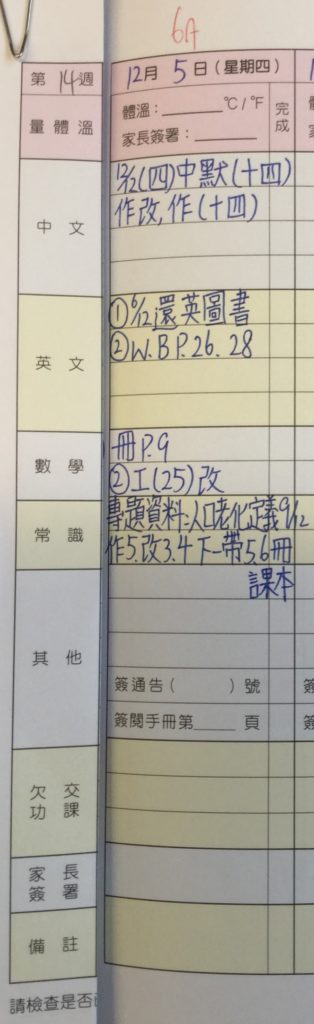 6A
第14週 12月5日(星期四)
量體溫 體溫：______°C/°F 完成
家長簽署：______
中文 12/12(四)中默(十四)
作改,作(十四)
英文 ①6/12還英圖書
②W.B P.26.28
數學 冊P.9
②工(25)改
常識 專題資料:人口老化定義9/12
作5.改3.4下一帶5.6冊
課本
其他
簽通告( )號
簽閱手冊第____頁
欠交功課
家長簽署
備註
請檢查是否